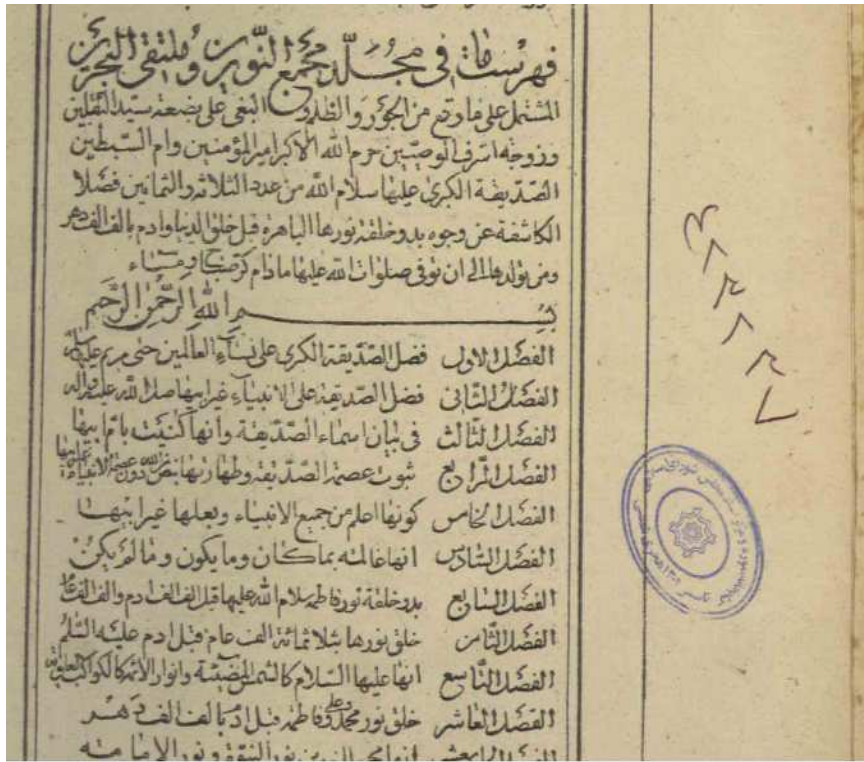 فهرست ما في مجلّد مجمع النّورين وملتقى البحرين
المشتمل على ما وقع من الجور والظلم والبغى على بضعة سيّد الثقلين
وزوجة اشرف الوصيّين حرم الله الاكبر امير المؤمنين وام السّبطين
الصّدّيقة الكبرى عليها سلام الله من عدد الثلاثة والثمانين فصلا
الكاشفة عن وجوه بدو خلقة نورها الباهرة قبل خلق الدنيا وادم بالف الف دهر
ومن تولدها الى ان توفى صلوات الله عليها ما دام كرّ صباح ومساء
بسم الله الرّحمن الرّحيم
الفصل الاول فضل الصّدّيقة الكبرى على نساء العالمين حتى مريم عليها
الفصل الثّانى فضل الصّديقة على الانبياء غير ابيها صلى الله عليه واله
الفصل الثّالث فى بيان اسماء الصّدّيقة وانها كنيت بام ابيها
الفصل الرّابع ثبوت عصمة الصّديقة وطهارتها بنص الله دون عصمة الانبياء
الفصل الخامس كونها اعلم من جميع الانبياء وبعلها غير ابيها
الفصل السّادس انها عالمة بما كان وما يكون وما لم يكن
الفصل السّابع بدو خلقة نور فاطمة سلام الله عليها قبل الف الف ادم والف الف
الفصل الثّامن خلق نورها بثلاثمائة الف عام قبل ادم عليه السّلم
الفصل التّاسع انها عليها السّلام كالشمس المضيئة وانوار الائمة كالكواكب
الفصل العاشر خلق نور محمد وعلى وفاطمة قبل ادم بالف الف دهر
انها مجمع النورين نور النبوة ونور الامامة